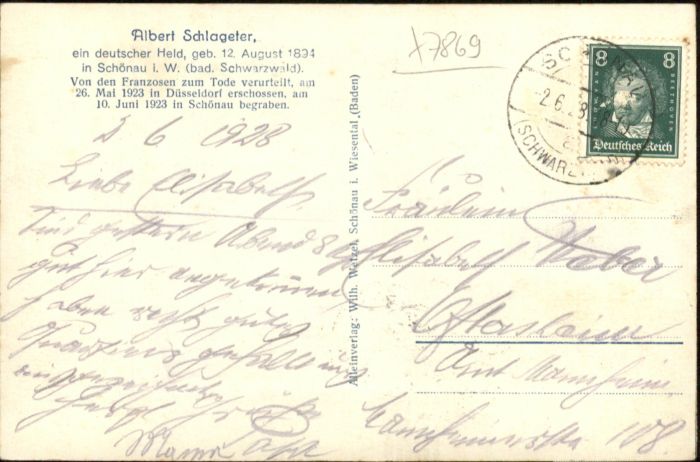 Albert Schlageter,
ein deutscher Held, geb. 12. August 1894
in Schönau i. W. (bad. Schwarzwald).
Von den Franzosen zum Tode verurteilt, am
26. Mai 1923 in Düsseldorf erschossen, am
10. Juni 1923 in Schönau begraben.
6 1928
Liebe Elisabeth
Sind gestern Abend 8
gut hier angekommen
haben recht gute
Quartier gefällt uns
ausgezeichnet
herzl. Grüße
Mama Papa
Alleinverlag: Wilh. Wetzel, Schönau i. Wiesental (Baden)
X7869
8 8
BEETHOVEN
Deutsches Reich
SCHÖNAU
-2.6.28.
(SCHWARZ
Fräulein
Elisabeth Weber
Amt Mannheim
108